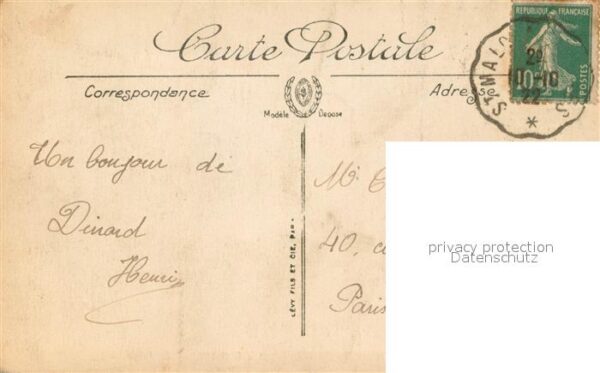 Carte Postale
RÉPUBLIQUE FRANÇAISE
10
POSTES
ST MALO
29
10-10
22
S
*
Correspondance
Modèle Déposé
Adresse
Un bonjour de
Dinard
Henri
LÉVY FILS ET CIE, PAR
M.
40,
Paris
privacy protection
Datenschutz